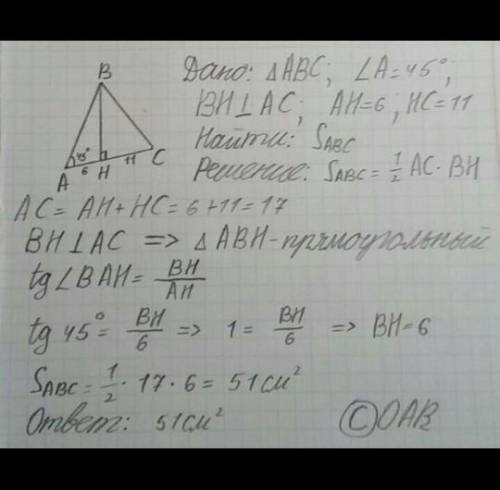 B
45°
A
6
H
11
C
Дано: △ABC; ∠A=45°;
BH⊥AC; AH=6, HC=11
Найти: S_ABC
Решение: S_ABC = 1/2 AC · BH
AC = AH + HC = 6 + 11 = 17
BH⊥AC => △ABH - прямоугольный
tg∠BAH = BH/AH
tg 45° = BH/6 => 1 = BH/6 => BH = 6
S_ABC = 1/2 · 17 · 6 = 51 см²
Ответ: 51 см²
©OAB